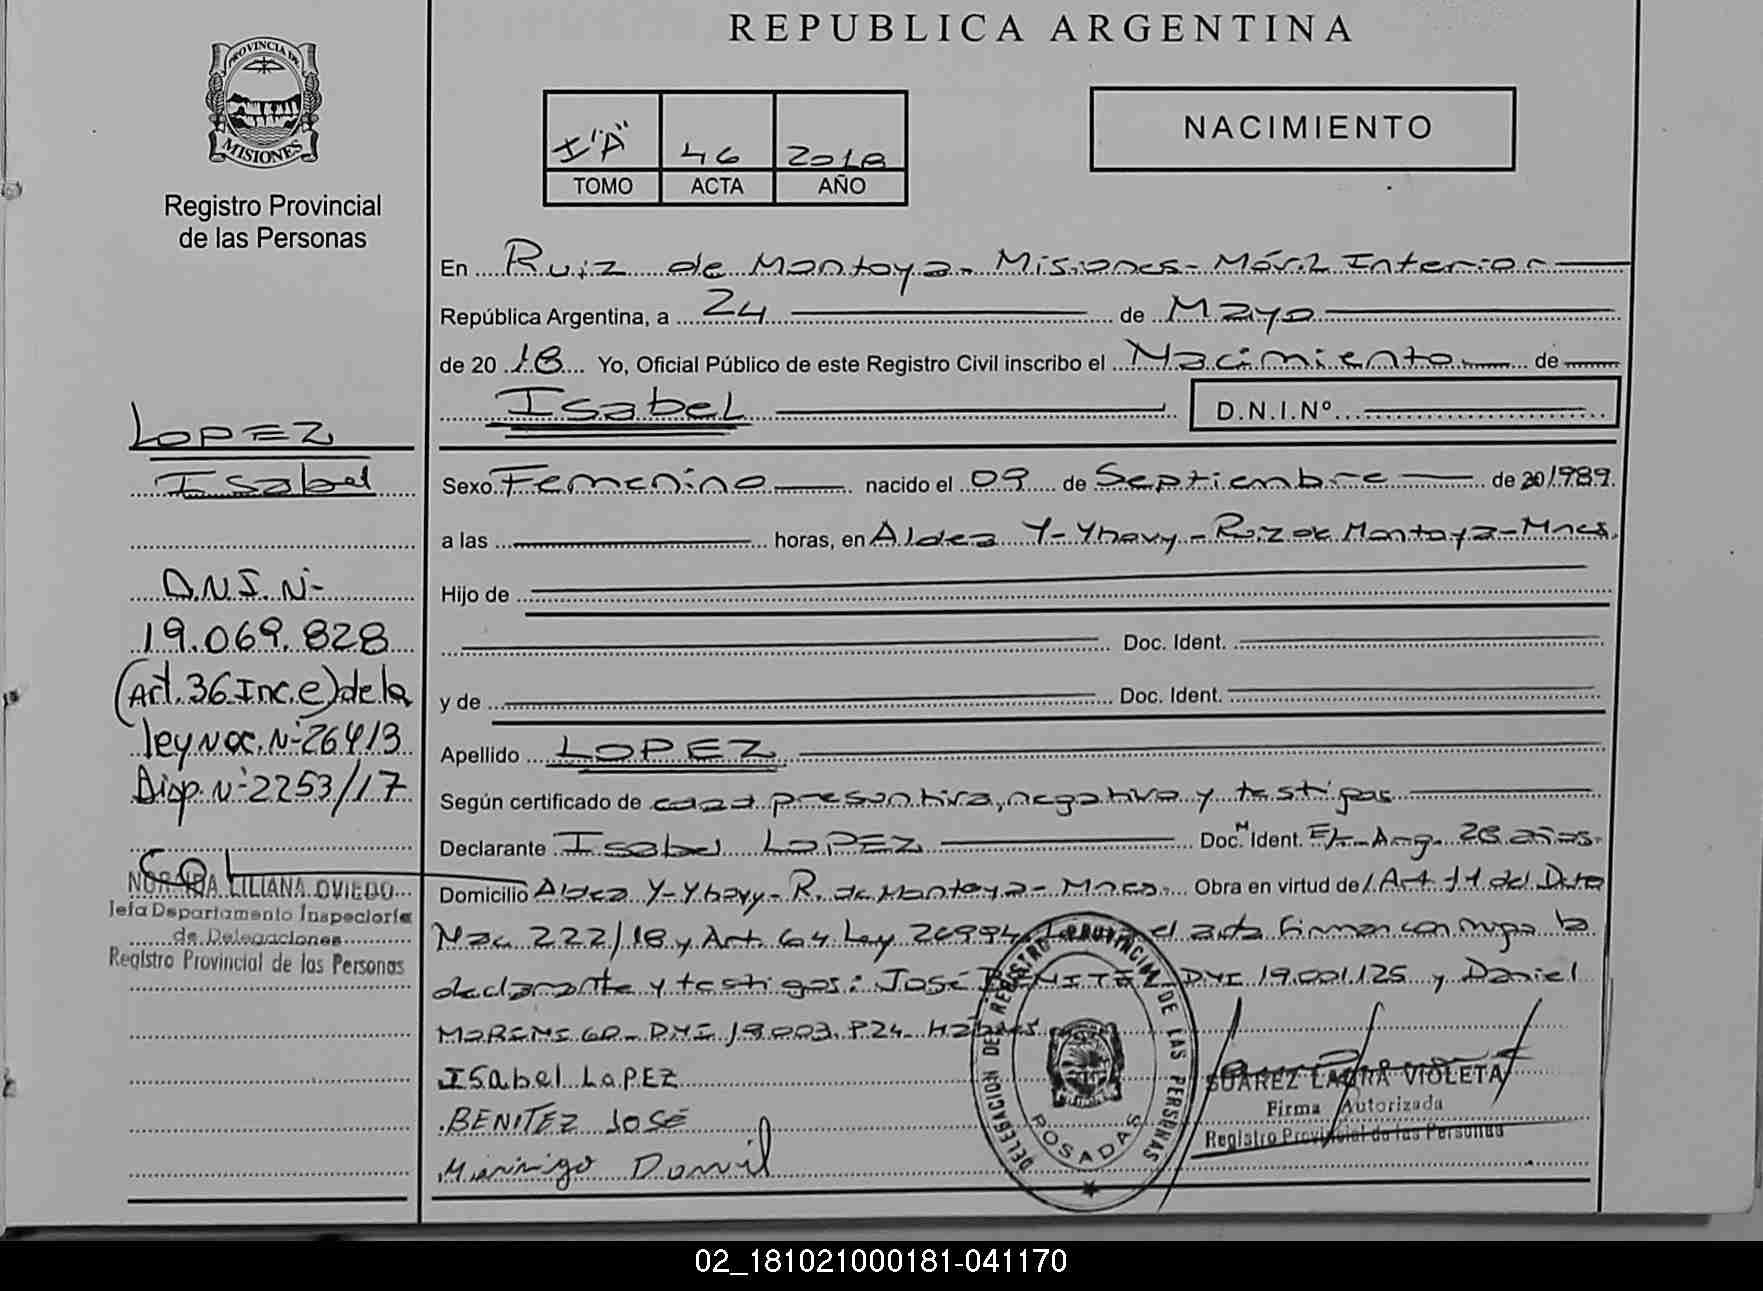 REPUBLICA ARGENTINA
PROVINCIA DE
MISIONES
Registro Provincial
de las Personas
I "A" 46 2018
TOMO ACTA AÑO
NACIMIENTO
En Ruiz de Montoya - Misiones - Móvil Interior
República Argentina, a 24 de Mayo
de 2018 Yo, Oficial Público de este Registro Civil inscribo el Nacimiento de
Isabel D.N.I.Nº
Sexo Femenino nacido el 09 de Septiembre de 20 1989.
a las horas, en Aldea Y-Yhavy - Ruiz de Montoya - Mnes.
Hijo de
Doc. Ident.
y de Doc. Ident.
Apellido LOPEZ
Según certificado de edad presuntiva, negativa y testigos
Declarante Isabel LOPEZ Doc. Ident. Et- Arg. 28 años.
Domicilio Aldea Y-Yhavy - R. de Montoya - Mnes. Obra en virtud de Art 11 del Dto
Nac 222/18 y Art. 64 Ley 26994. el acta firman conmigo la
declarante y testigos: José BENITEZ DNI 19.001.125 y Daniel
DNI 19.003.824
ISabel LoPEZ
BENITEZ JOSÉ
LOPEZ
Isabel
D.N.I. Nº
19.069.828
(Art. 36 Inc. e) de la
ley Nac. Nº 26413
Disp. Nº 2253/17
LILIANA OVIEDO
Jefa Departamento Inspectoría
de Delegaciones
Registro Provincial de las Personas
DELEGACION DEL REGISTRO PROVINCIAL DE LAS PERSONAS
POSADAS
SUAREZ LAURA VIOLETA
Firma Autorizada
Registro Provincial de las Personas
02_181021000181-041170